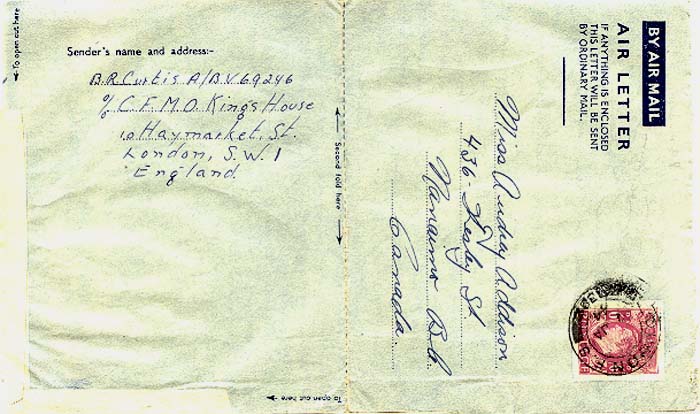 To open cut here
Sender's name and address:-
B.R. Curtis A/B. V 69246
% C.F.M.O. King's House
10 Haymarket. St.
London, S.W. 1
England.
Second fold here
To open cut here
BY AIR MAIL
AIR LETTER
IF ANYTHING IS ENCLOSED
THIS LETTER WILL BE SENT
BY ORDINARY MAIL.
Miss Audrey Addison
436 - Kesley St
Nanaimo B.C.
Canada
To open cut here